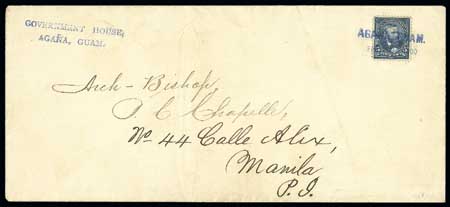 GOVERNMENT HOUSE,
AGAÑA, GUAM.
AGAÑA, GUAM.
Arch-Bishop,
P. L. Chapelle,
No 44 Calle Alix,
Manila
P.I.